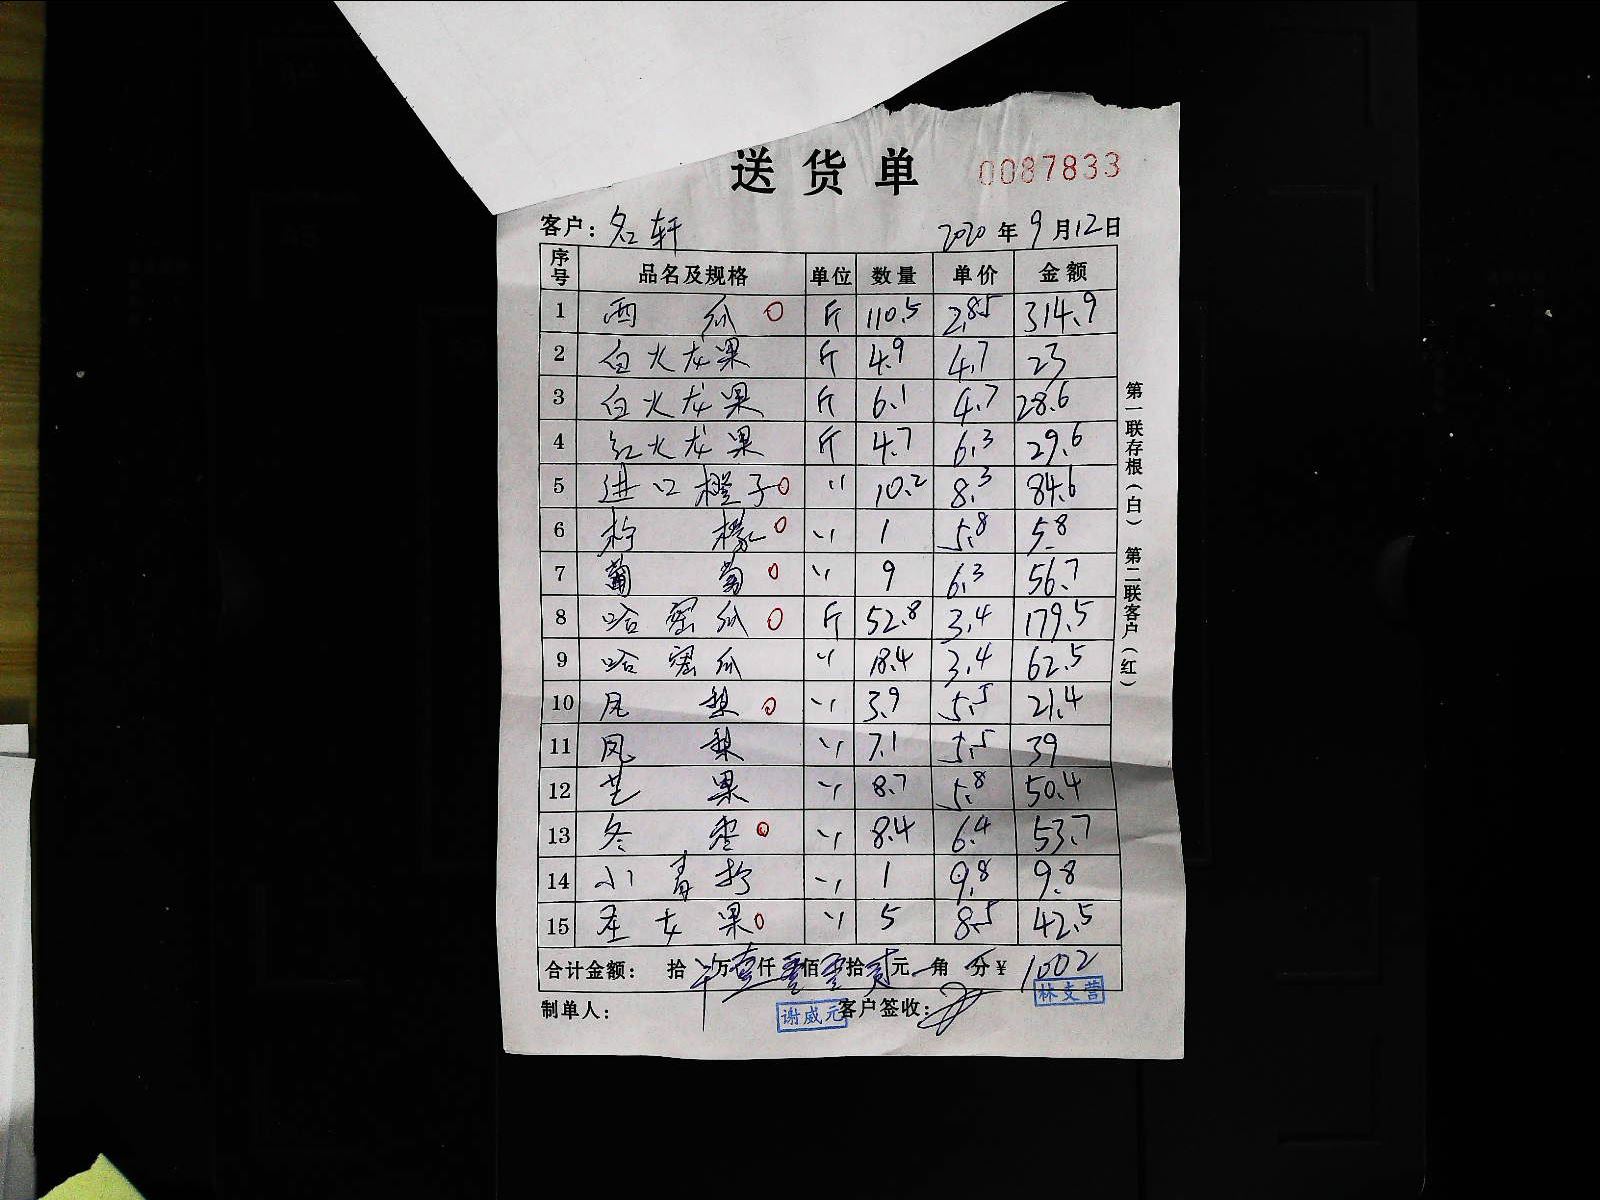 送货单 0087833
客户：名轩 2020年9月12日
序号 品名及规格 单位 数量 单价 金额
1 西瓜 斤 110.5 2.85 314.9
2 白火龙果 斤 4.9 4.7 23
3 白火龙果 斤 6.1 4.7 28.6
4 红火龙果 斤 4.7 6.3 29.6
5 进口橙子 〃 10.2 8.3 84.6
6 柠檬 〃 1 5.8 5.8
7 葡萄 〃 9 6.3 56.7
8 哈密瓜 斤 52.8 3.4 179.5
9 哈密瓜 〃 18.4 3.4 62.5
10 凤梨 〃 3.9 5.5 21.4
11 凤梨 〃 7.1 5.5 39
12 芒果 〃 8.7 5.8 50.4
13 冬枣 〃 8.4 6.4 53.7
14 小青柠 〃 1 9.8 9.8
15 圣女果 〃 5 8.5 42.5
合计金额： 拾 万壹仟零佰零拾贰元 角 分 ¥ 1002
制单人： 谢威元 客户签收： 林支营
第一联存根（白） 第二联客户（红）